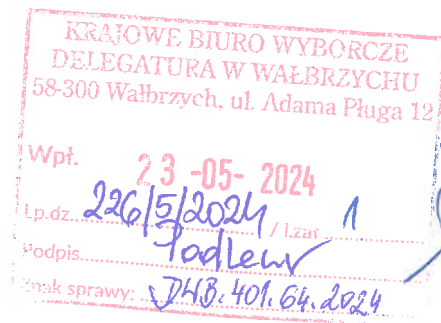 KRAJOWE BIURO WYBORCZE
DELEGATURA W WAŁBRZYCHU
58-300 Wałbrzych, ul. Adama Pługa 12
Wpł. 23 -05- 2024
Lp.dz. 226/5/2024 / l.zał 1
Podpis
Znak sprawy: DWB.401.64.2024